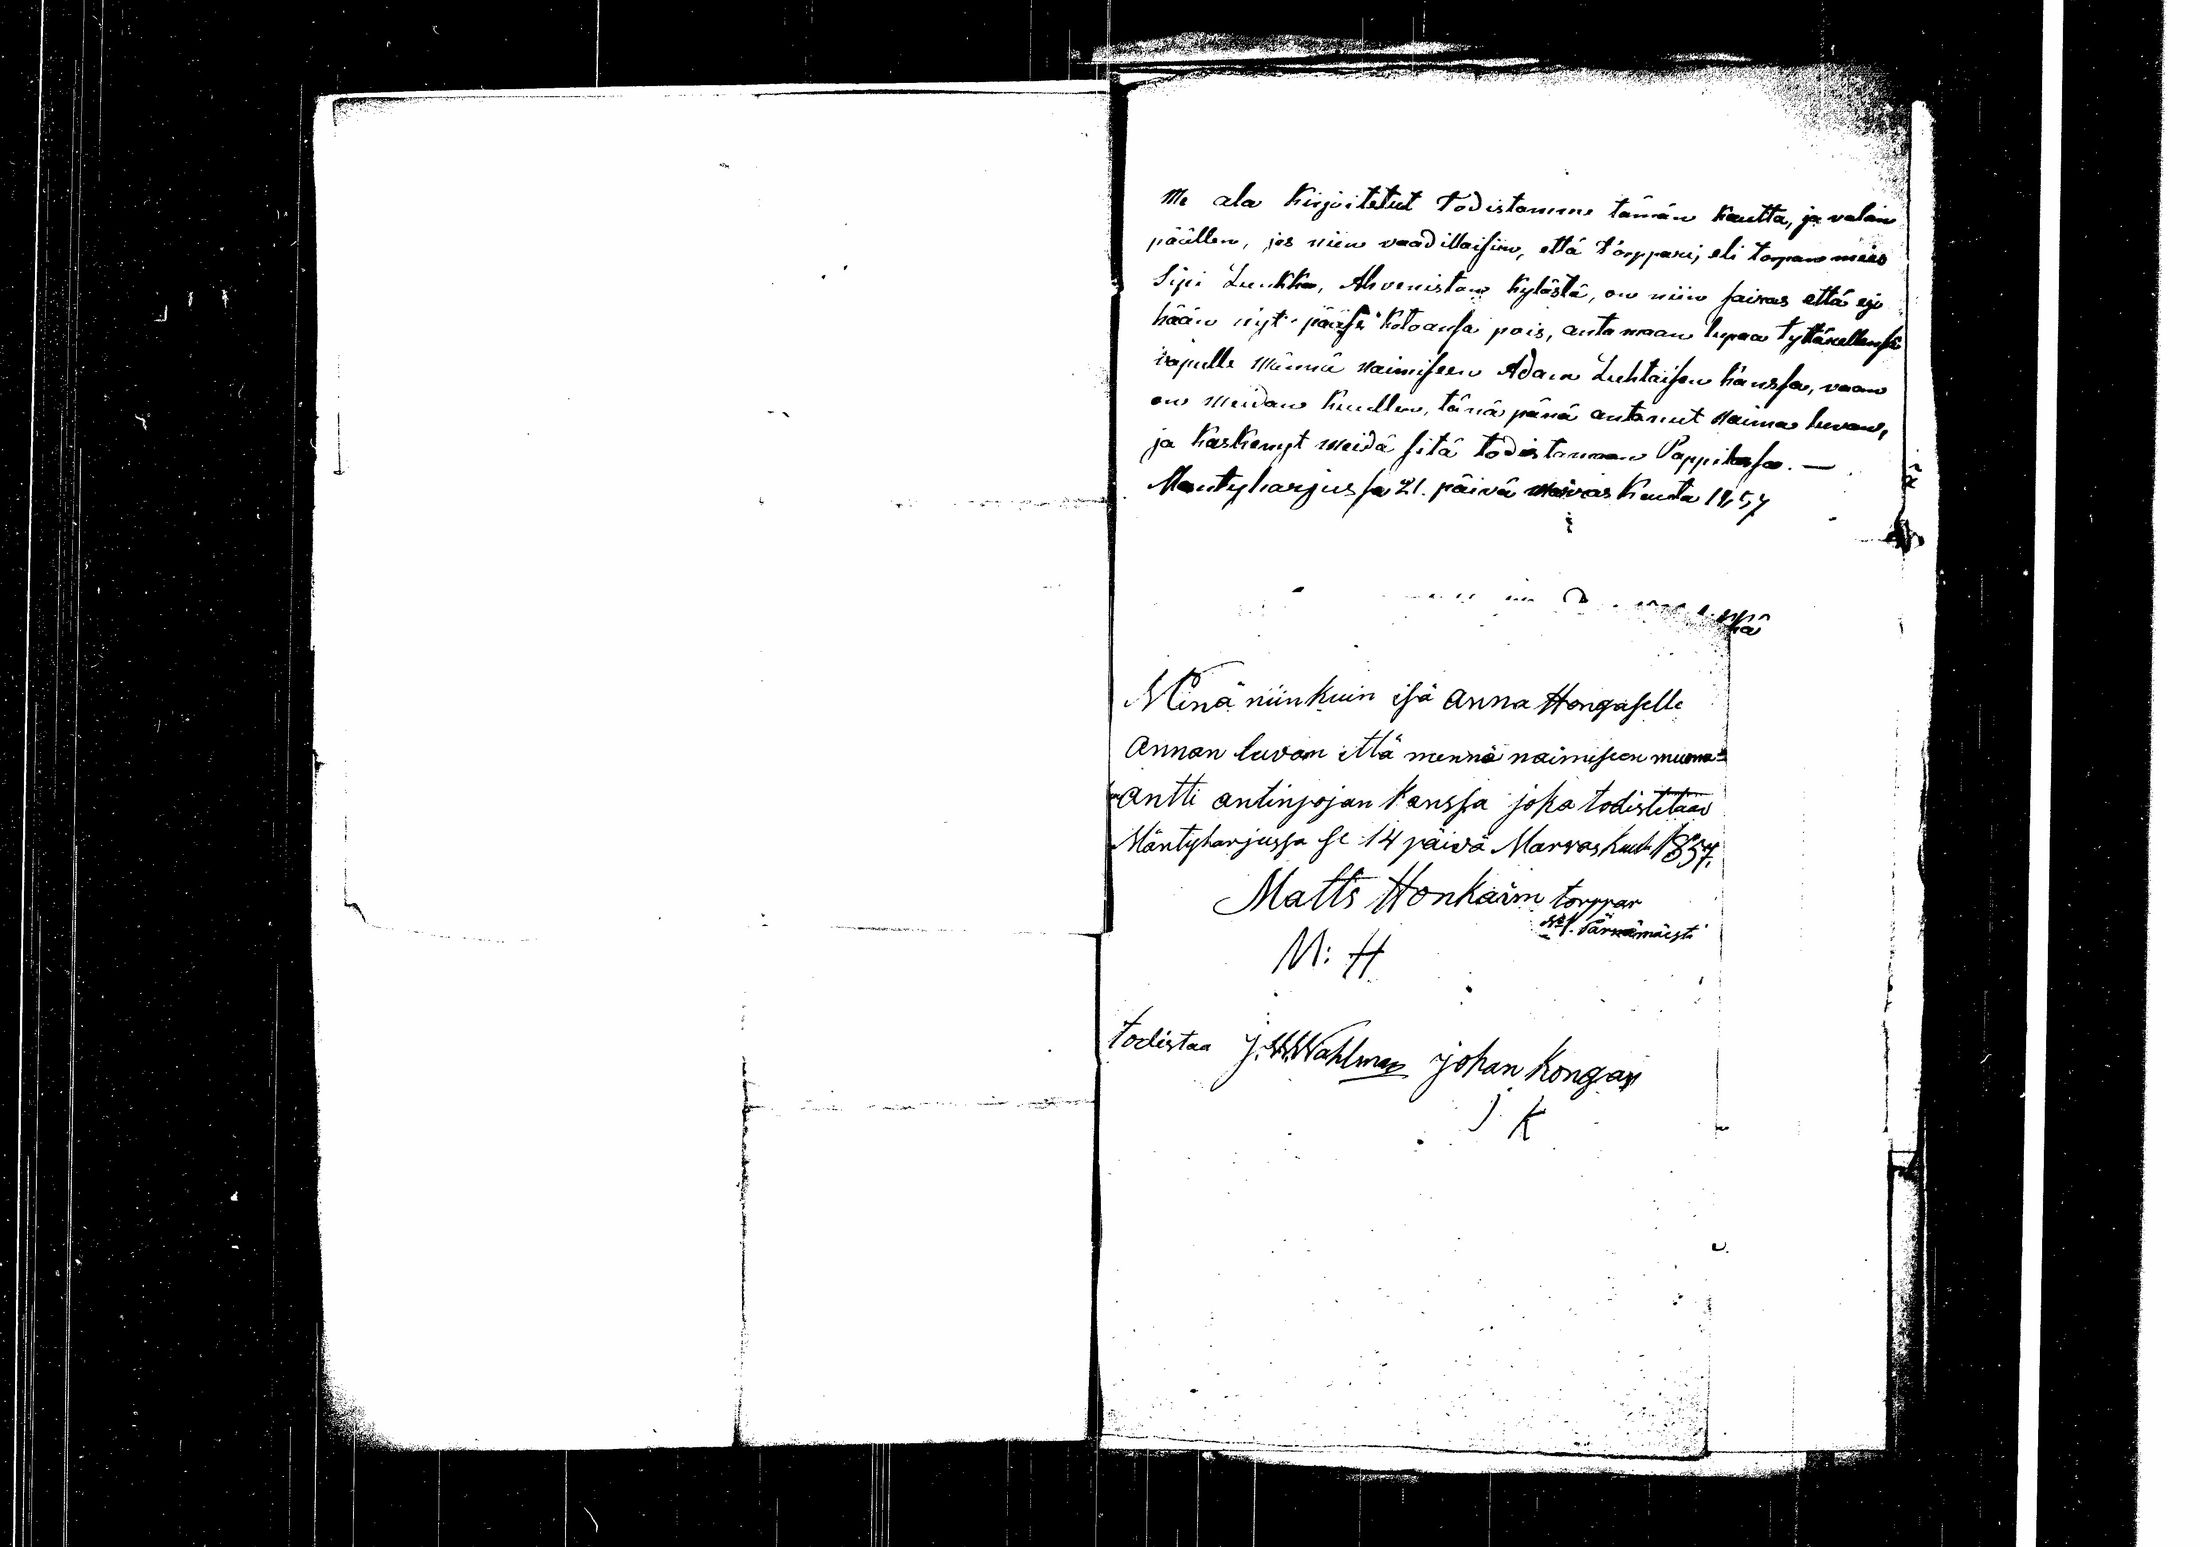 Me ala kirjoitetut todistamme tämän kautta, ja valan
päällen, jos niin vaadittaisiin, että torppari, eli torpan mies
Sipi Luukka, Ahvenistan kylästä, on niin sairas että ej
hään nyt pääse kotoansa pois, antamaan lupaa tyttärellensä
Männä Naimiseen Adam Luhtaisen kanssa, vaan
on Meidän kuullen, tänä pänä antanut Naima luvan,
ja käskenyt Meidä sitä todistamaan Pappilassa. —
Mäntyharjussa 21. päivä Marras kuuta 1857
kä
Minä niinkuin isä Anna Hongaselle
Annan luvan että mennä naimiseen
Antti antinpojan kanssa joka todistetaan
Mäntyharjussa se 14 päivä Marraskuuta 1857.
Matts Honkain torppar
No 1. Pärnämäest
M: H
todistaa J. W. Wahlman Johan Kongas
J K